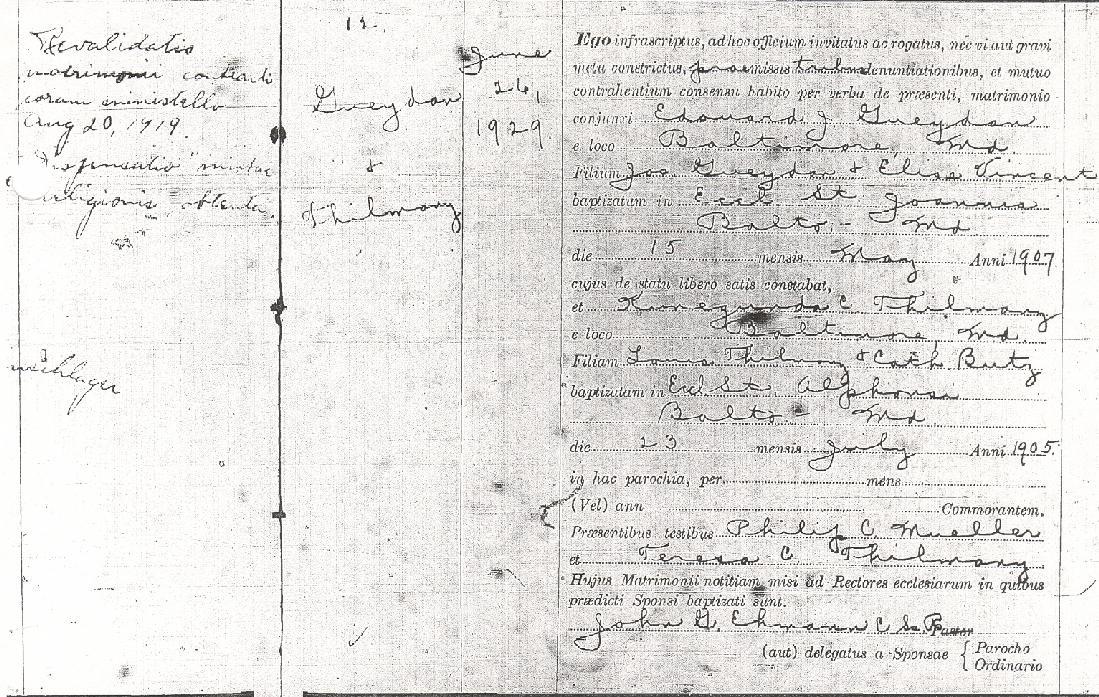 12.
Revalidatio
matrimonii contracti
coram ministello
Aug 20, 1919.
"Dispensatio" mixtae
religionis obtenta.
Gueydan
&
Thilmany
June
26,
1929
Ego infrascriptus, ad hoc officium invitatus ac rogatus, nec vi aut gravi
metu constrictus, praemissis denuntiationibus, et mutuo
contrahentium consensu habito per verba de præsenti, matrimonio
conjunxi Edouard J Gueydan
e loco Baltimore, Md.
Filium Joe Gueydan & Elise Vincent
baptizatum in Eccl St Joannis
Balto. - Md
die 15 mensis May Anni 1907
cujus de statu libero satis constabat,
et Kunegunda C Thilmany
e loco Baltimore, Md.
Filiam Louis Thilmany & Cath Butz
baptizatam in Eccl St. Alphonsa
Balto - Md
die 23 mensis July Anni 1905.
in hac parochia, per mens
(Vel) ann Commorantem,
Præsentibus testibus Philip C. Mueller
et Teresa C Thilmany
Hujus Matrimonii notitiam misi ad Rectores ecclesiarum in quibus
prædicti Sponsi baptizati sunt.
John G. Ehmann C Ss R Pastor
(aut) delegatus a Sponsae { Parocho
Ordinario